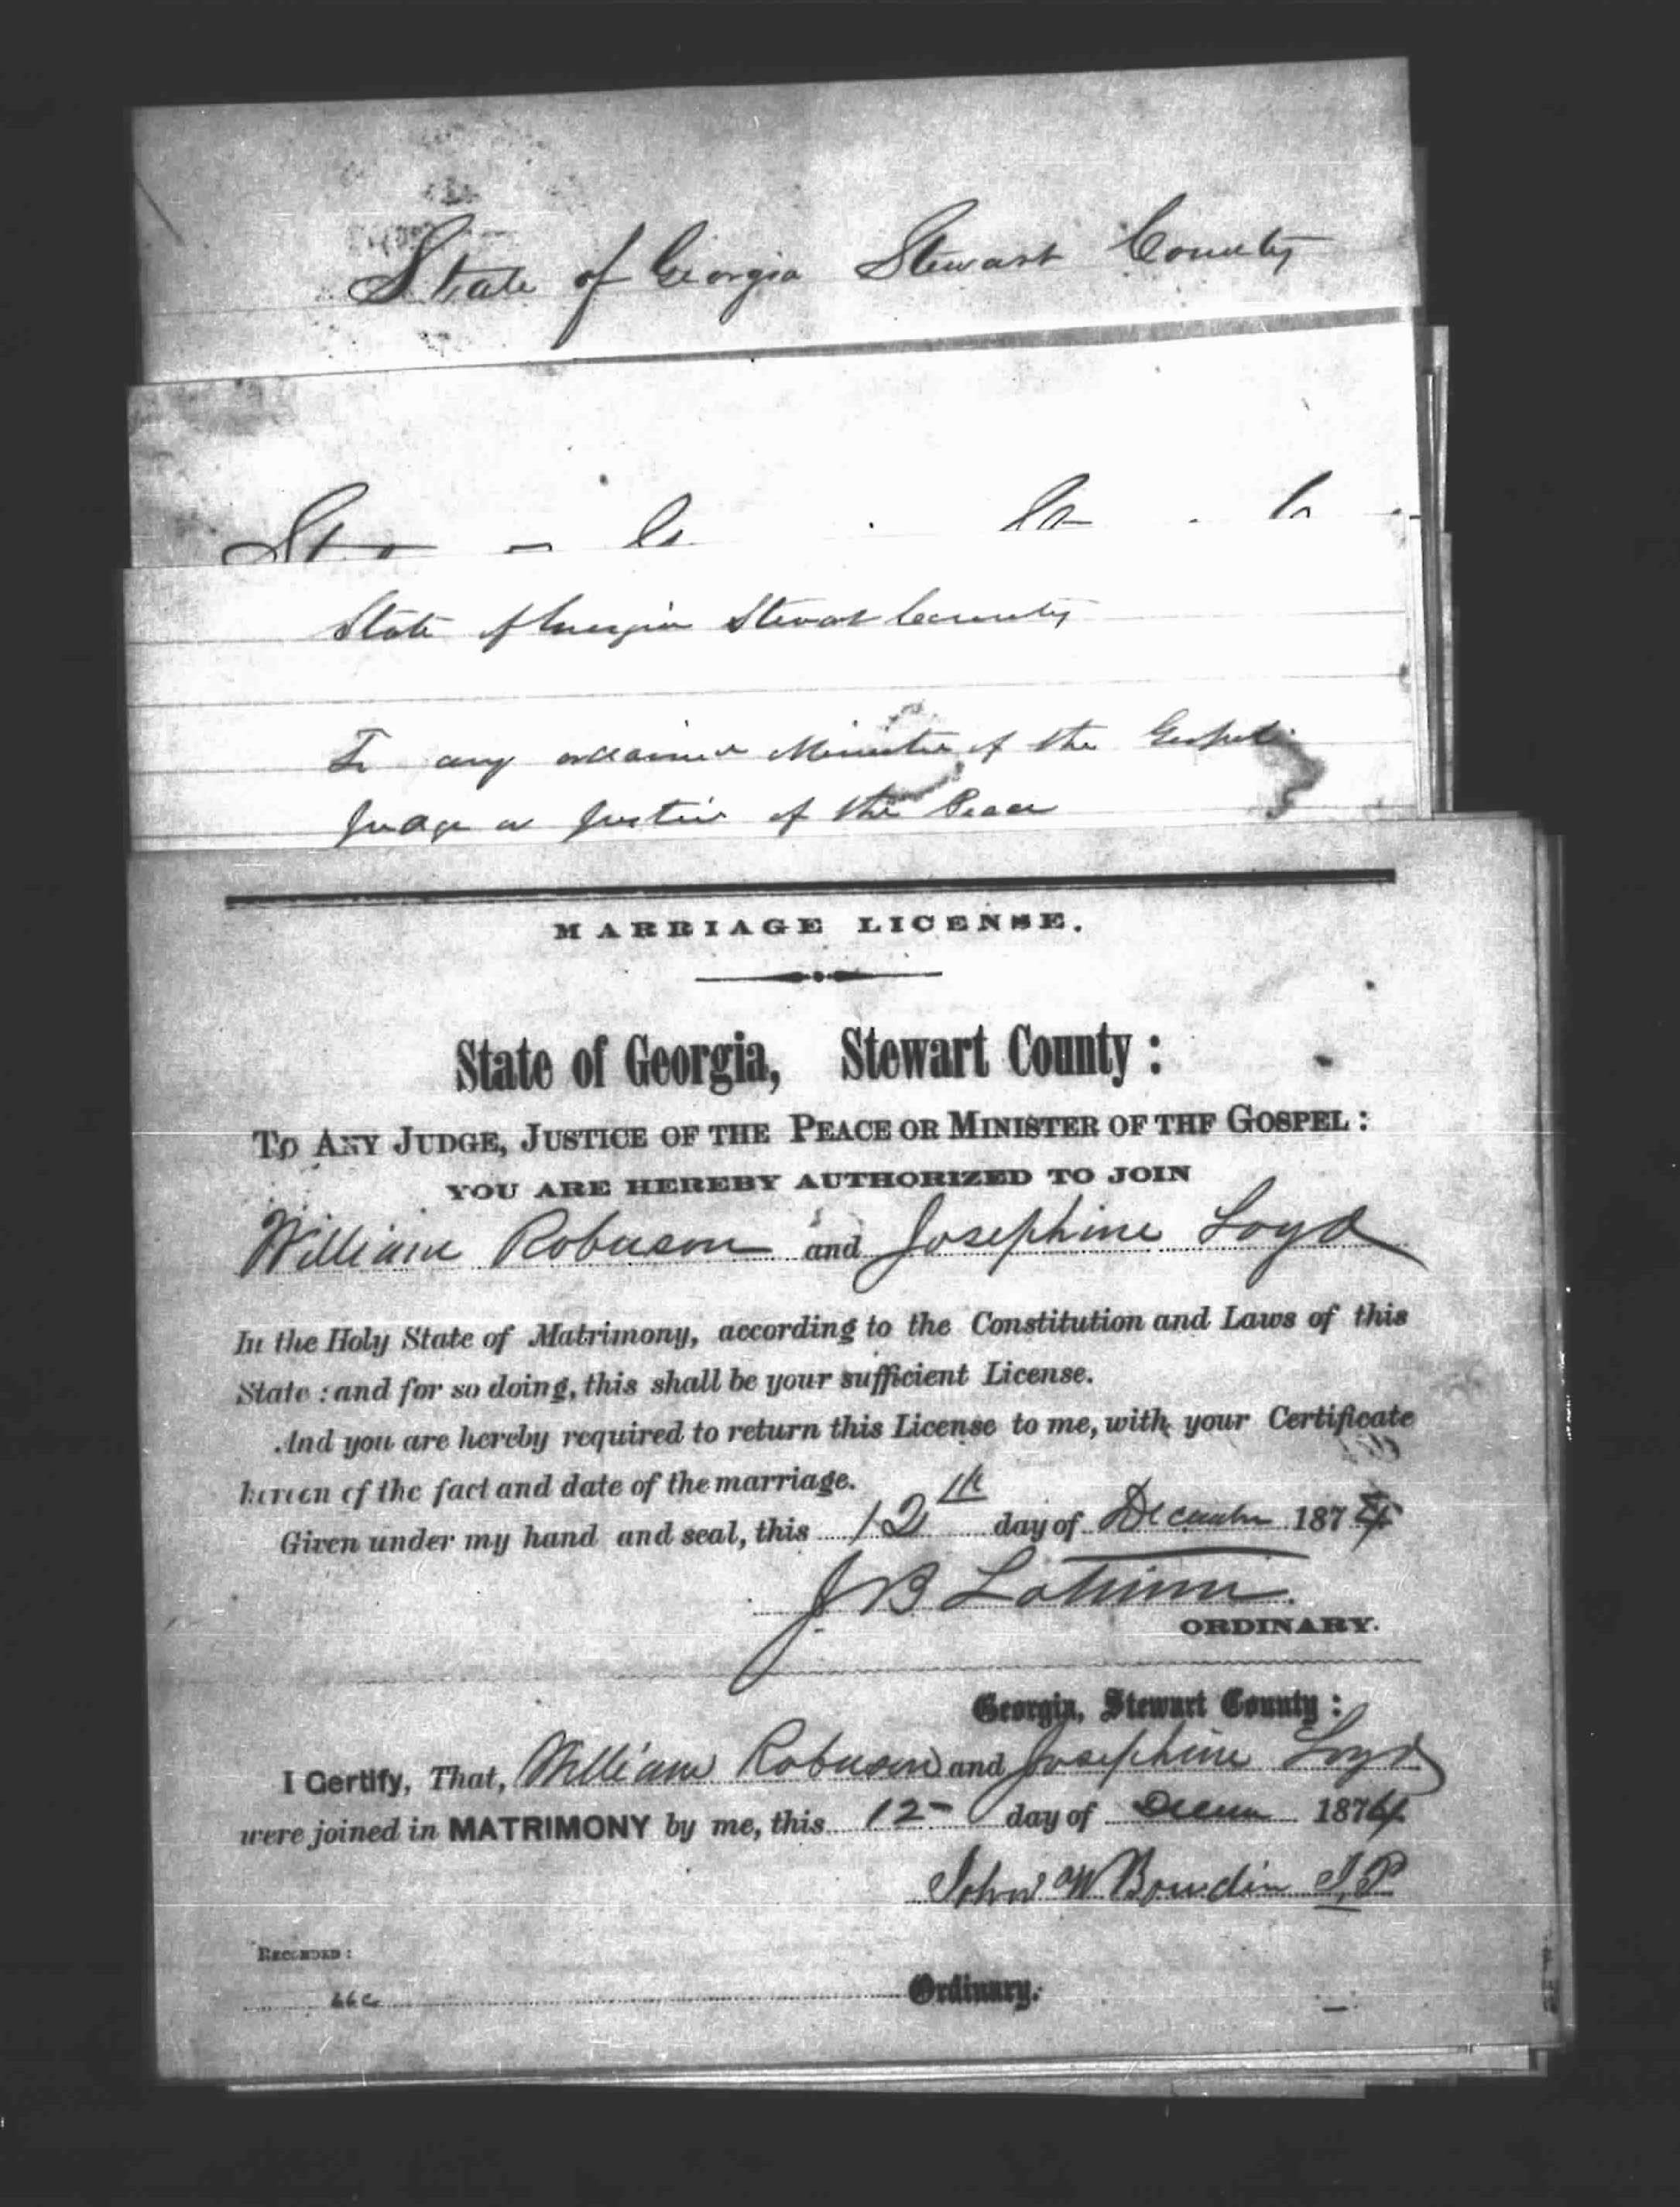 State of Georgia Stewart County
State of Georgia Stewart County
To any ordained Minister of the Gospel
Judge or Justice of the Peace
MARRIAGE LICENSE.
State of Georgia, Stewart County:
TO ANY JUDGE, JUSTICE OF THE PEACE OR MINISTER OF THE GOSPEL:
YOU ARE HEREBY AUTHORIZED TO JOIN
William Robuson and Josephine Loyd
In the Holy State of Matrimony, according to the Constitution and Laws of this
State: and for so doing, this shall be your sufficient License.
And you are hereby required to return this License to me, with your Certificate
hereon of the fact and date of the marriage.
Given under my hand and seal, this 12th day of December 1874
J B Latimer
ORDINARY.
Georgia, Stewart County:
I Certify, That, William Robuson and Josephine Loyd
were joined in MATRIMONY by me, this 12 day of Decem 1874
John W Bowdin J.P
RECORDED:
Ordinary.